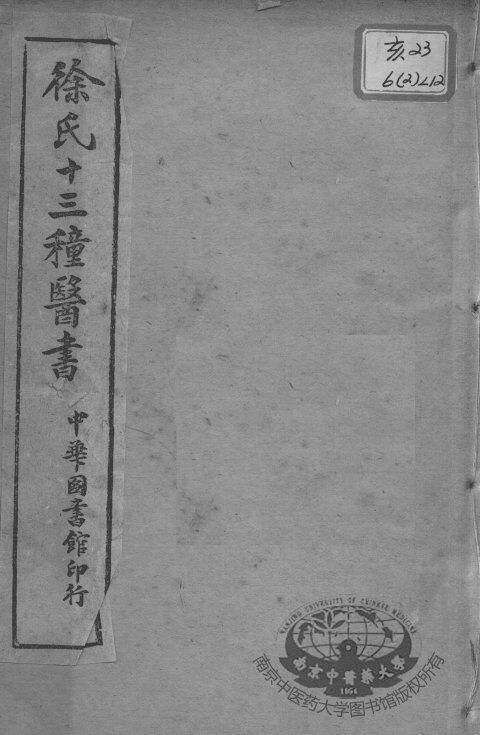 徐氏十三種醫書
中華圖書館印行
亥23
6(2)L12
NANJING UNIVERSITY OF CHINESE MEDICINE
南京中醫藥大學
1954
南京中医药大学图书馆版权所有